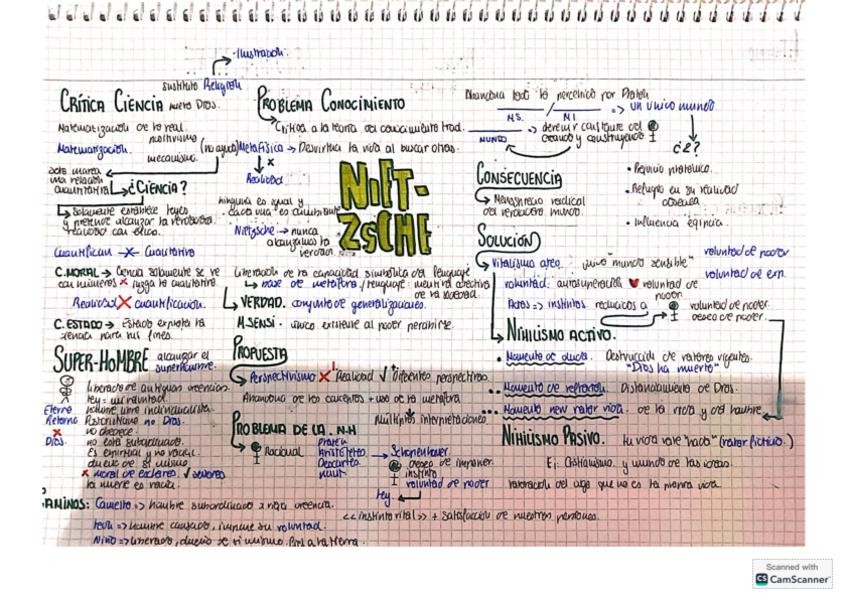 Ilustración.
sustituto Religión
CRÍTICA CIENCIA nuevo Dios.
Matematización de lo real.
Matematización. mecanismo.
solo marca
una relación
cuantitativa ¿CIENCIA?
Solamente establece leyes
y pretende alcanzar la verdadera
realidad con ellos.
Cuantifican X Cualitativo
C.MORAL → Ciencia solamente se ve
con números x juzga lo cualitativo.
Realidad X cuantificación.
C.ESTADO → Estado explota la
ciencia para sus fines.
SUPER-HOMBRE alcanzar el
superhombre.
liberado de antiguas creencias.
Ley = voluntad.
Eterno
Retorno no Dios.
X no obedece.
Dios. no está subordinado.
Es empírico y no racional.
dueño de sí mismo
x moral de esclavos ✓ señores
la muerte es vacía.
AMINOS: Camello => hombre subordinado x creencia.
león => hombre cansado, impone su voluntad.
Niño => liberado, dueño de sí mismo.
PROBLEMA CONOCIMIENTO
Crítica a la teoría del conocimiento trad.
(no ayuda) Metafísica → Desvirtúa la vida al buscar otras.
x
Realidad
ninguna es igual y
cada una es cambiante
Nietzsche → nunca
alcanzamos la
verdad.
NIET-
ZSCHE
Liberación de la capacidad simbólica del lenguaje
base de metáfora / lenguaje: mentira colectiva
de la sociedad.
VERDAD. conjunto de generalizaciones.
M.SENSI. único existente al poder percibirse.
PROPUESTA
Perspectivismo X Realidad ✓ diferentes perspectivas
Abandono de los conceptos + uso de la metáfora
Múltiples interpretaciones
PROBLEMA DE LA N.H
Racional
Platón
Aristóteles
Descartes
Kant
Schopenhauer.
deseo de imponer.
instinto
voluntad de poder
ley
<<instinto vital>> + satisfacción de nuestras pasiones.
Abandona todo lo percibido por Platón
M.S. / M.I => un único mundo
MUNDO devenir constante del
creando y construyendo
¿2?
• Prejuicio platónico.
• Refugio en su realidad
obsesa
• Influencia egipcia.
CONSECUENCIA
Menosprecio radical
del verdadero mundo.
SOLUCIÓN
Vitalismo ateo. único "mundo sensible" voluntad de poder
voluntad: autosuperación voluntad de
poder voluntad de exp.
Actos => instintos reducidos a voluntad de poder.
deseo de poder.
NIHILISMO ACTIVO.
• Momento de duda. Destrucción de valores vigentes.
"Dios ha muerto"
Momento de reflexión. Distanciamiento de Dios.
Momento new valor vida. de la vida y del hombre
NIHILISMO PASIVO. tu vida vale "nada" (valor ficticio.)
Ej: Cristianismo y mundo de las ideas.
valoración del algo que no es la propia vida.
Scanned with
CS CamScanner